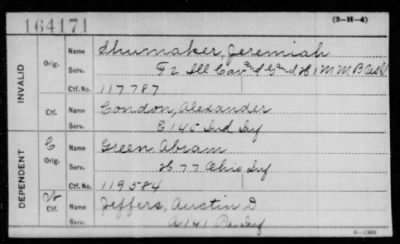 164171
(3-H-4)
INVALID
Orig.
Name Shumaker, Jeremiah
Serv. F 2 Ill Cav and H 1 M M B Cav
Ctf. No. 117787
Ctf.
Name Condon, Alexander
Serv. E 145 Ind Inf
DEPENDENT
C Orig.
Name Green, Abram
Serv. H 77 Ohio Inf
Ctf. No. 119584
Ctf.
Name Jeffers, Austin D
Serv. A 141 Pa Inf